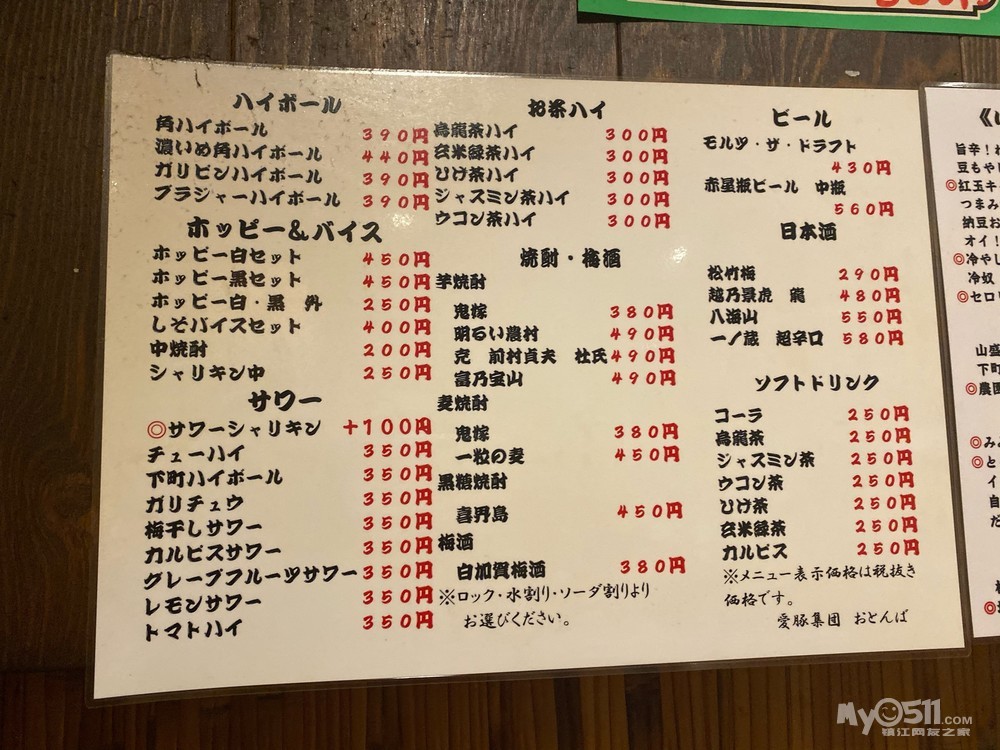 ハイボール
角ハイボール 390円
濃いめ角ハイボール 440円
ガリピンハイボール 390円
ブラジャーハイボール 390円
ホッピー&バイス
ホッピー白セット 450円
ホッピー黒セット 450円
ホッピー白・黒 外 250円
しそバイスセット 400円
中焼酎 200円
シャリキン中 250円
サワー
◎サワーシャリキン +100円
チューハイ 350円
下町ハイボール 350円
ガリチュウ 350円
梅干しサワー 350円
カルピスサワー 350円
グレープフルーツサワー 350円
レモンサワー 350円
トマトハイ 350円
お茶ハイ
烏龍茶ハイ 300円
玄米緑茶ハイ 300円
ひげ茶ハイ 300円
ジャスミン茶ハイ 300円
ウコン茶ハイ 300円
焼酎・梅酒
芋焼酎
鬼嫁 380円
明るい農村 490円
克 前村貞夫 杜氏 490円
富乃宝山 490円
麦焼酎
鬼嫁 380円
一粒の麦 450円
黒糖焼酎
喜界島 450円
梅酒
白加賀梅酒 380円
※ロック・水割り・ソーダ割りより
お選びください。
ビール
モルツ・ザ・ドラフト
430円
赤星瓶ビール 中瓶
560円
日本酒
松竹梅 290円
越乃景虎 龍 480円
八海山 550円
一ノ蔵 超辛口 580円
ソフトドリンク
コーラ 250円
烏龍茶 250円
ジャスミン茶 250円
ウコン茶 250円
ひげ茶 250円
玄米緑茶 250円
カルピス 250円
※メニュー表示価格は税抜き
価格です。
愛豚集団 おとんば
旨辛!
豆もやし
◎紅玉キ
つまみ
納豆お
オイ!
◎冷やし
冷奴
◎セロリ
山盛
下町
◎農園
◎み
◎と
イ
自
だ
My0511.COM
镇江网友之家